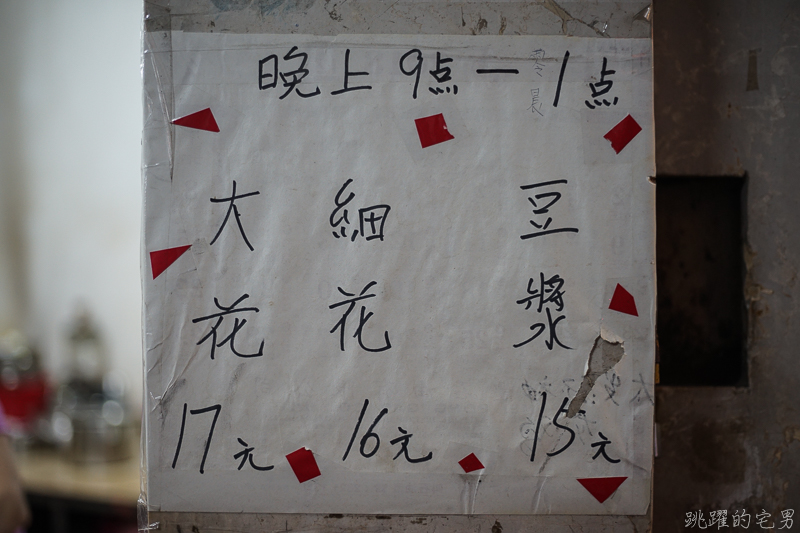 晚上 9点 — 凌晨 1点
大花 細花 豆漿
17元 16元 15元
跳躍的宅男